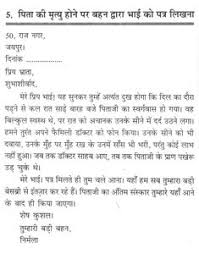 5. पिता की मृत्यु होने पर बहन द्वारा भाई को पत्र लिखना
50, राज नगर,
जयपुर।
दिनांक ..................
प्रिय भ्राता,
शुभाशीर्वाद,
मेरे प्रिय भाई! यह सुनकर तुम्हें अत्यंत दुख होगा कि दिल का दौरा
पड़ने से कल रात साढ़े बारह बजे पिताजी का स्वर्गवास हो गया। वह
बिल्कुल स्वस्थ थे, पर रात को अचानक उनके सीने में दर्द उठने लगा।
हमने तुरंत अपने फैमिली डॉक्टर को फोन किया। उनके सीने को भी
दबाया, उनके मुँह पर मुँह रख के उनमें साँस भी भरी, परंतु कोई लाभ
नहीं हुआ। जब तक डॉक्टर साहब आए, तब तक पिताजी के प्राण पखेरू
उड़ चुके थे।
मेरे भाई! पत्र मिलते ही तुम चले आना। यहाँ हम सब तुम्हारा बड़ी
बेसब्री से इंतज़ार कर रहे हैं। पिताजी का अंतिम संस्कार तुम्हारे यहाँ आने
के बाद ही किया जाएगा।
शेष कुशल।
तुम्हारी बड़ी बहन,
निर्मला